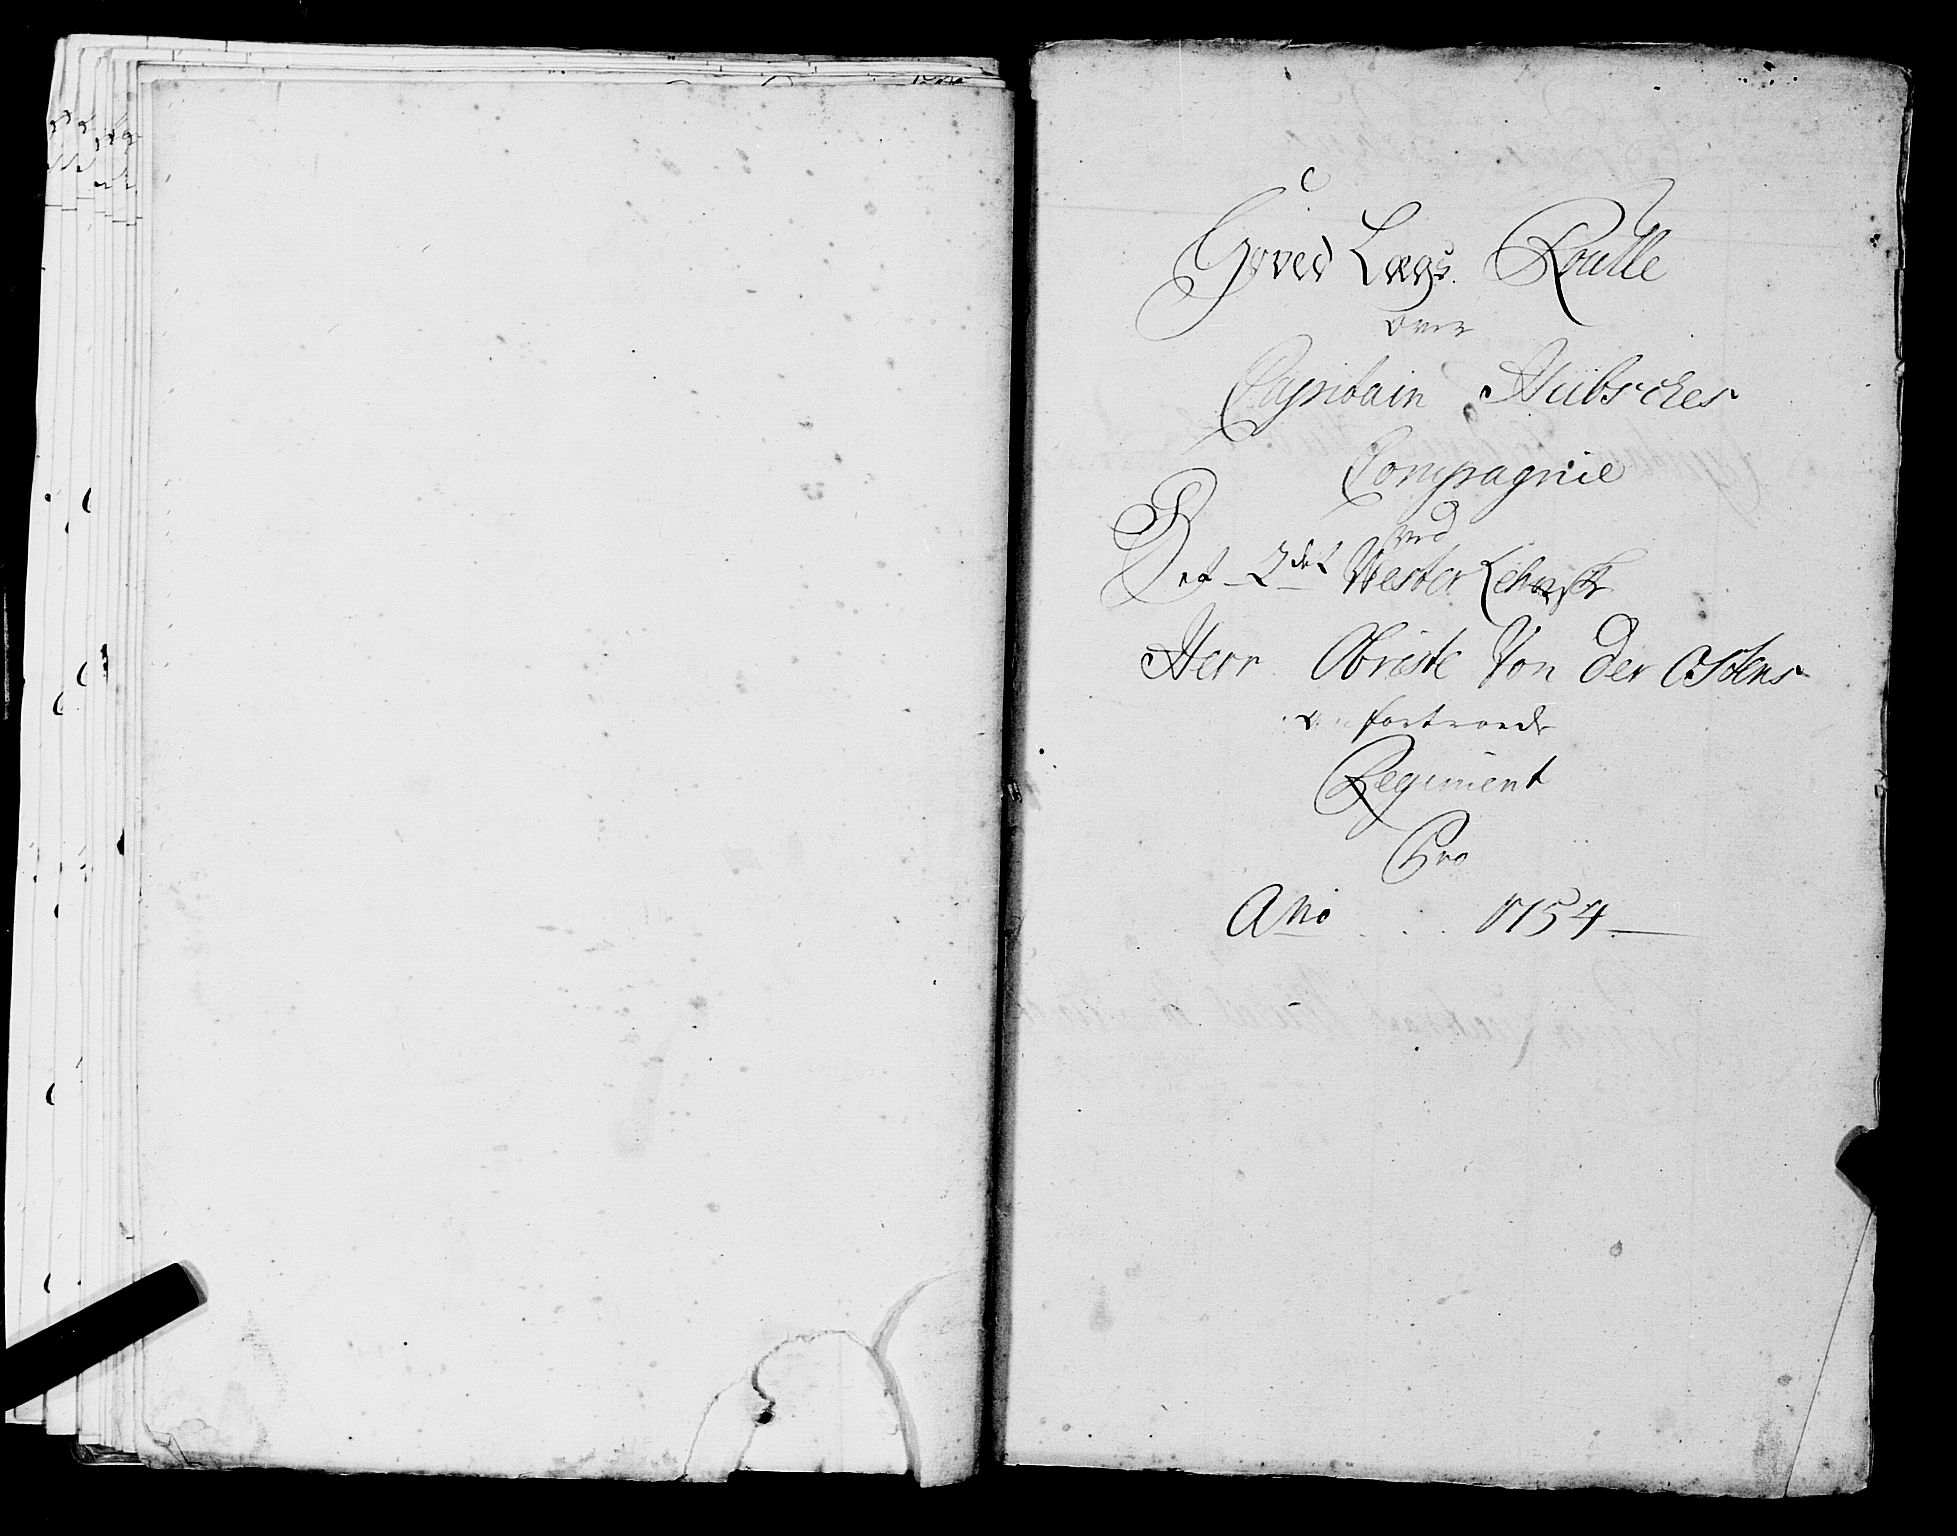 Hoved Lægs Roulle
over
Capitain Hübsches
Compagnie
ved
Det 2det Wester Lehnske
Herr Obriste Von der Ostens
anfortroede
Regiment
Pro
Ano 1754